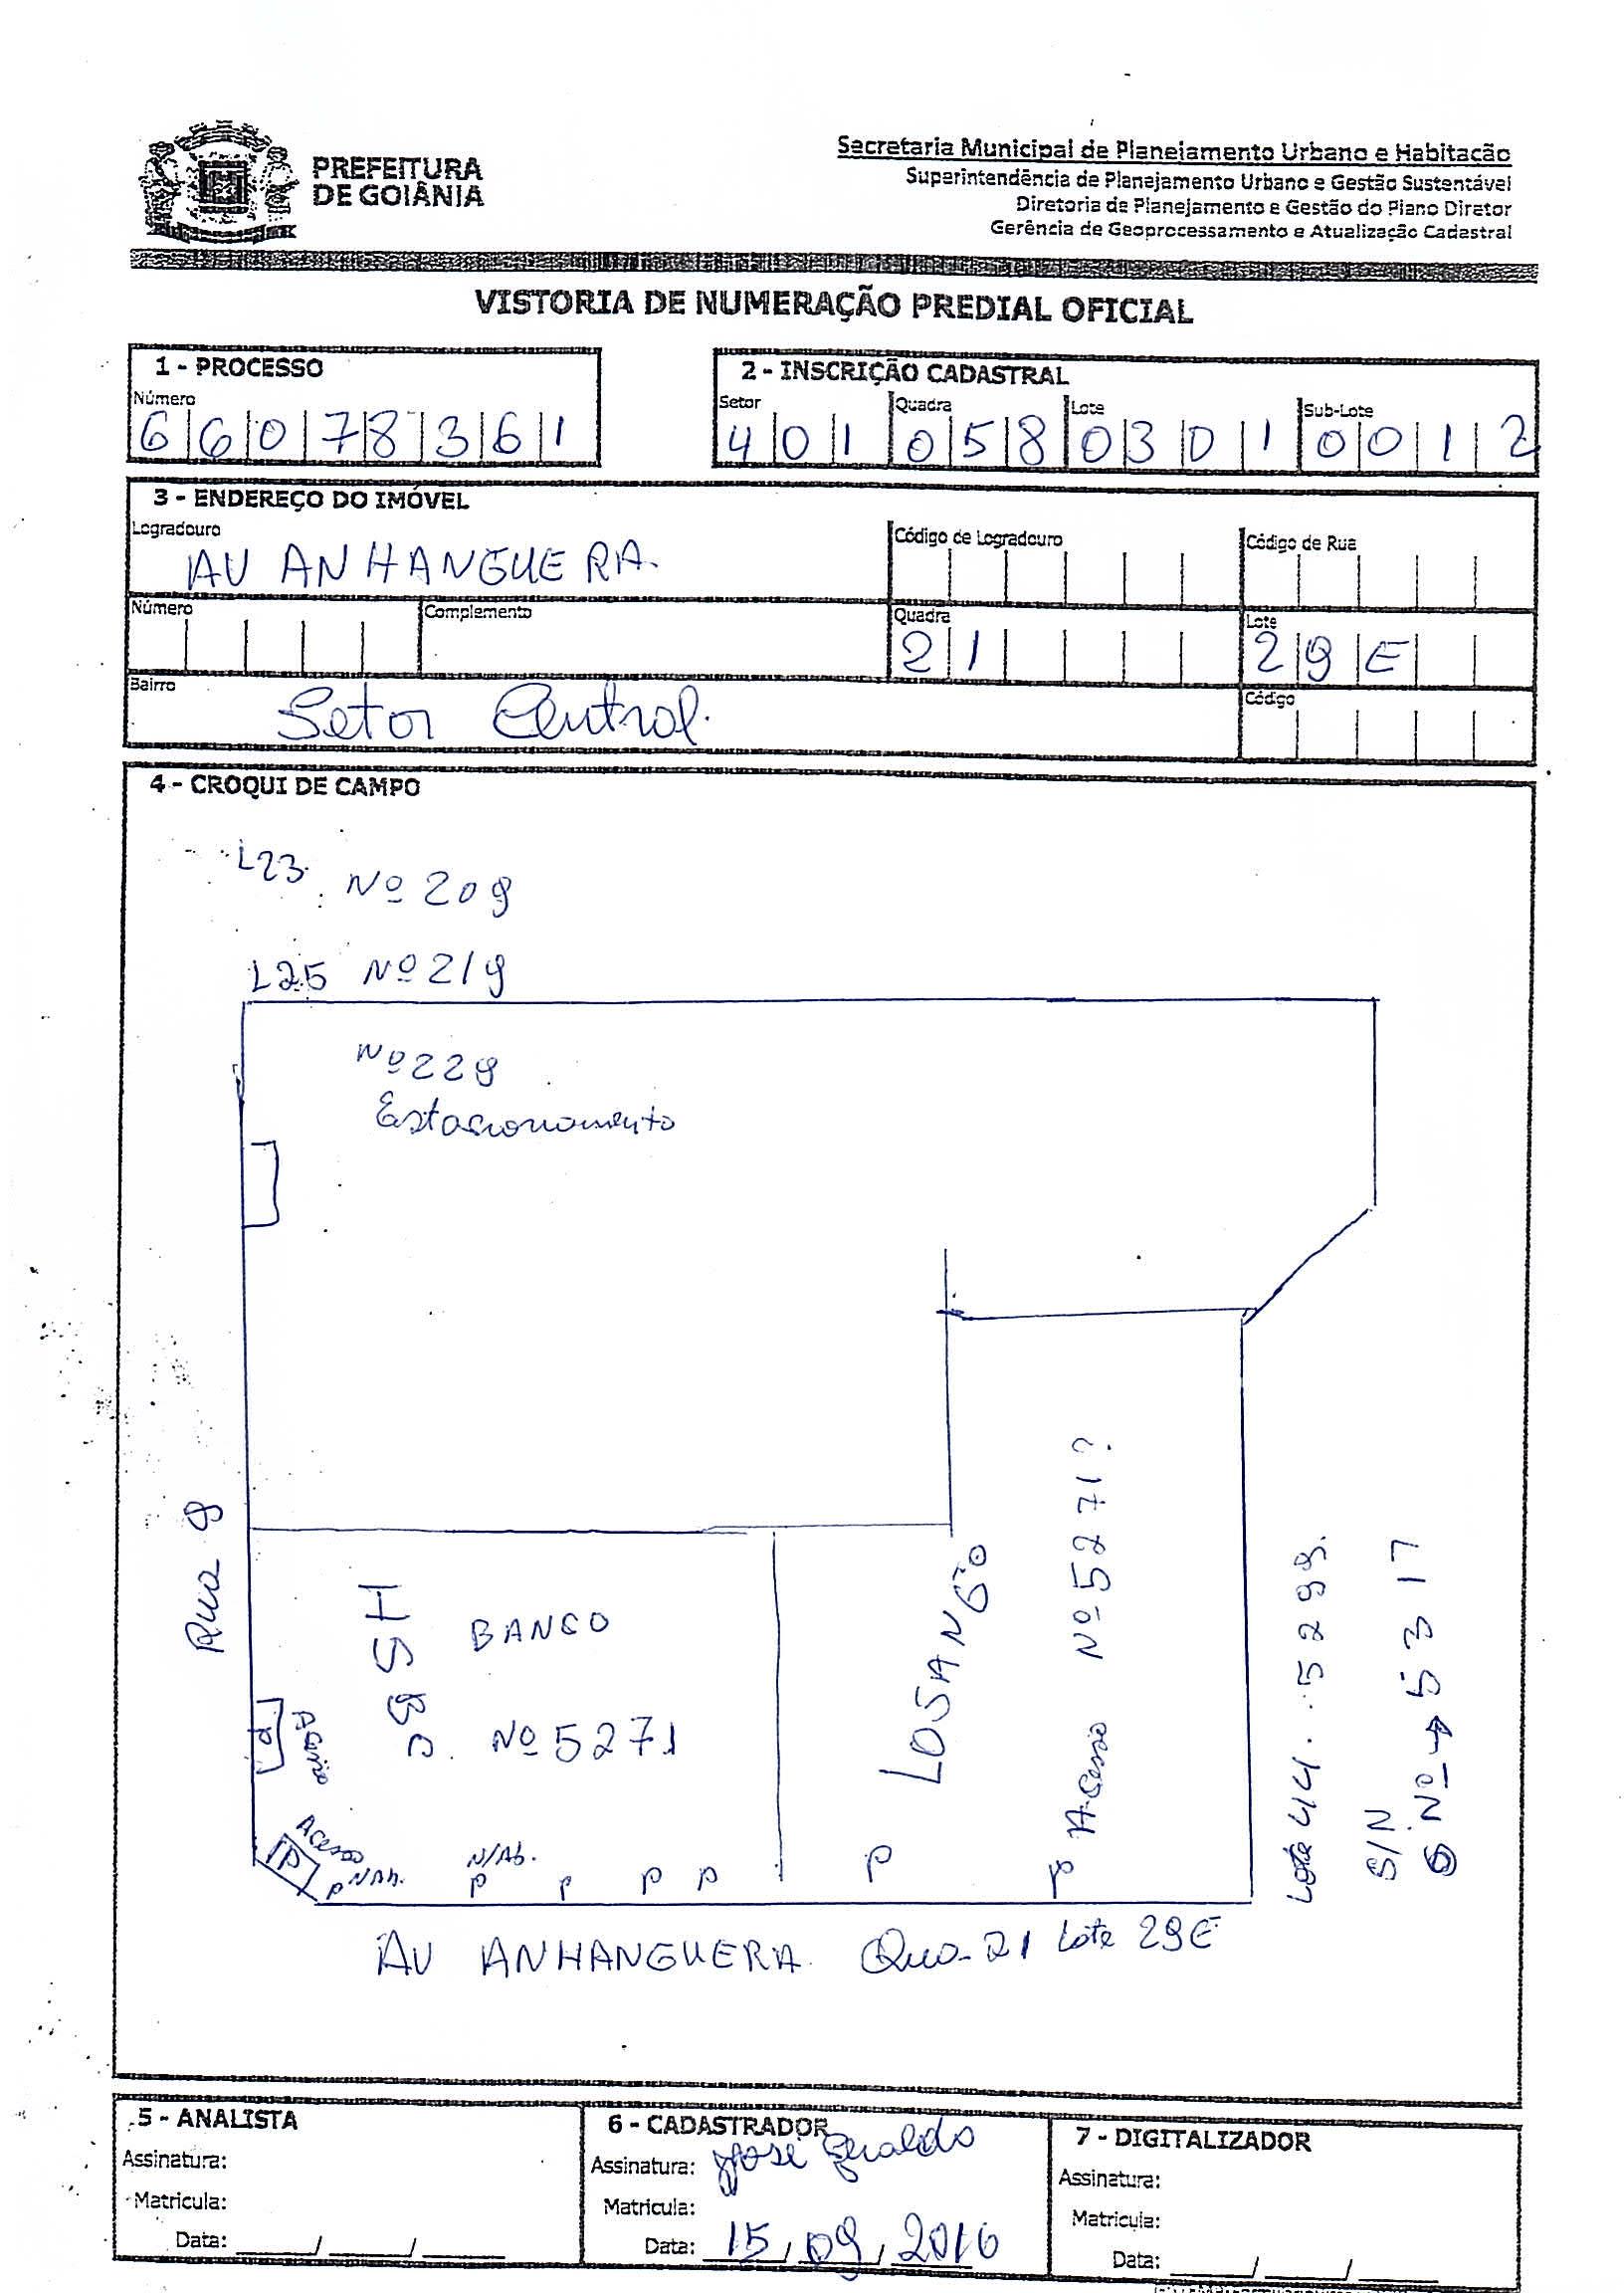 PREFEITURA
DE GOIÂNIA
Secretaria Municipal de Planejamento Urbano e Habitação
Superintendência de Planejamento Urbano e Gestão Sustentável
Diretoria de Planejamento e Gestão do Plano Diretor
Gerência de Geoprocessamento e Atualização Cadastral
VISTORIA DE NUMERAÇÃO PREDIAL OFICIAL
1 - PROCESSO
Número
66078361
2 - INSCRIÇÃO CADASTRAL
Setor Quadra Lote Sub-Lote
401 058 0301 0012
3 - ENDEREÇO DO IMÓVEL
Logradouro Código de Logradouro Código de Rua
AV ANHANGUERA.
Número Complemento Quadra Lote
21 29E
Bairro Código
Setor Central.
4 - CROQUI DE CAMPO
L23. Nº 209
L25 Nº 219
Nº 229
Estacionamento
Rua 9
HSBC
BANCO
Nº 5271
Acesso
Acesso
P
P
P N/Ab.
N/Ab.
P P P P
LOSANGO
P
P Acesso Nº 5271?
Lote 44. 5299.
S/N
Nº → 5317
AV ANHANGUERA. Qua. 21 Lote 29E
5 - ANALISTA
Assinatura:
Matricula:
Data: ____/____/____
6 - CADASTRADOR
Assinatura: José Geraldo
Matricula:
Data: 15/09/2016
7 - DIGITALIZADOR
Assinatura:
Matricula:
Data: ____/____/____